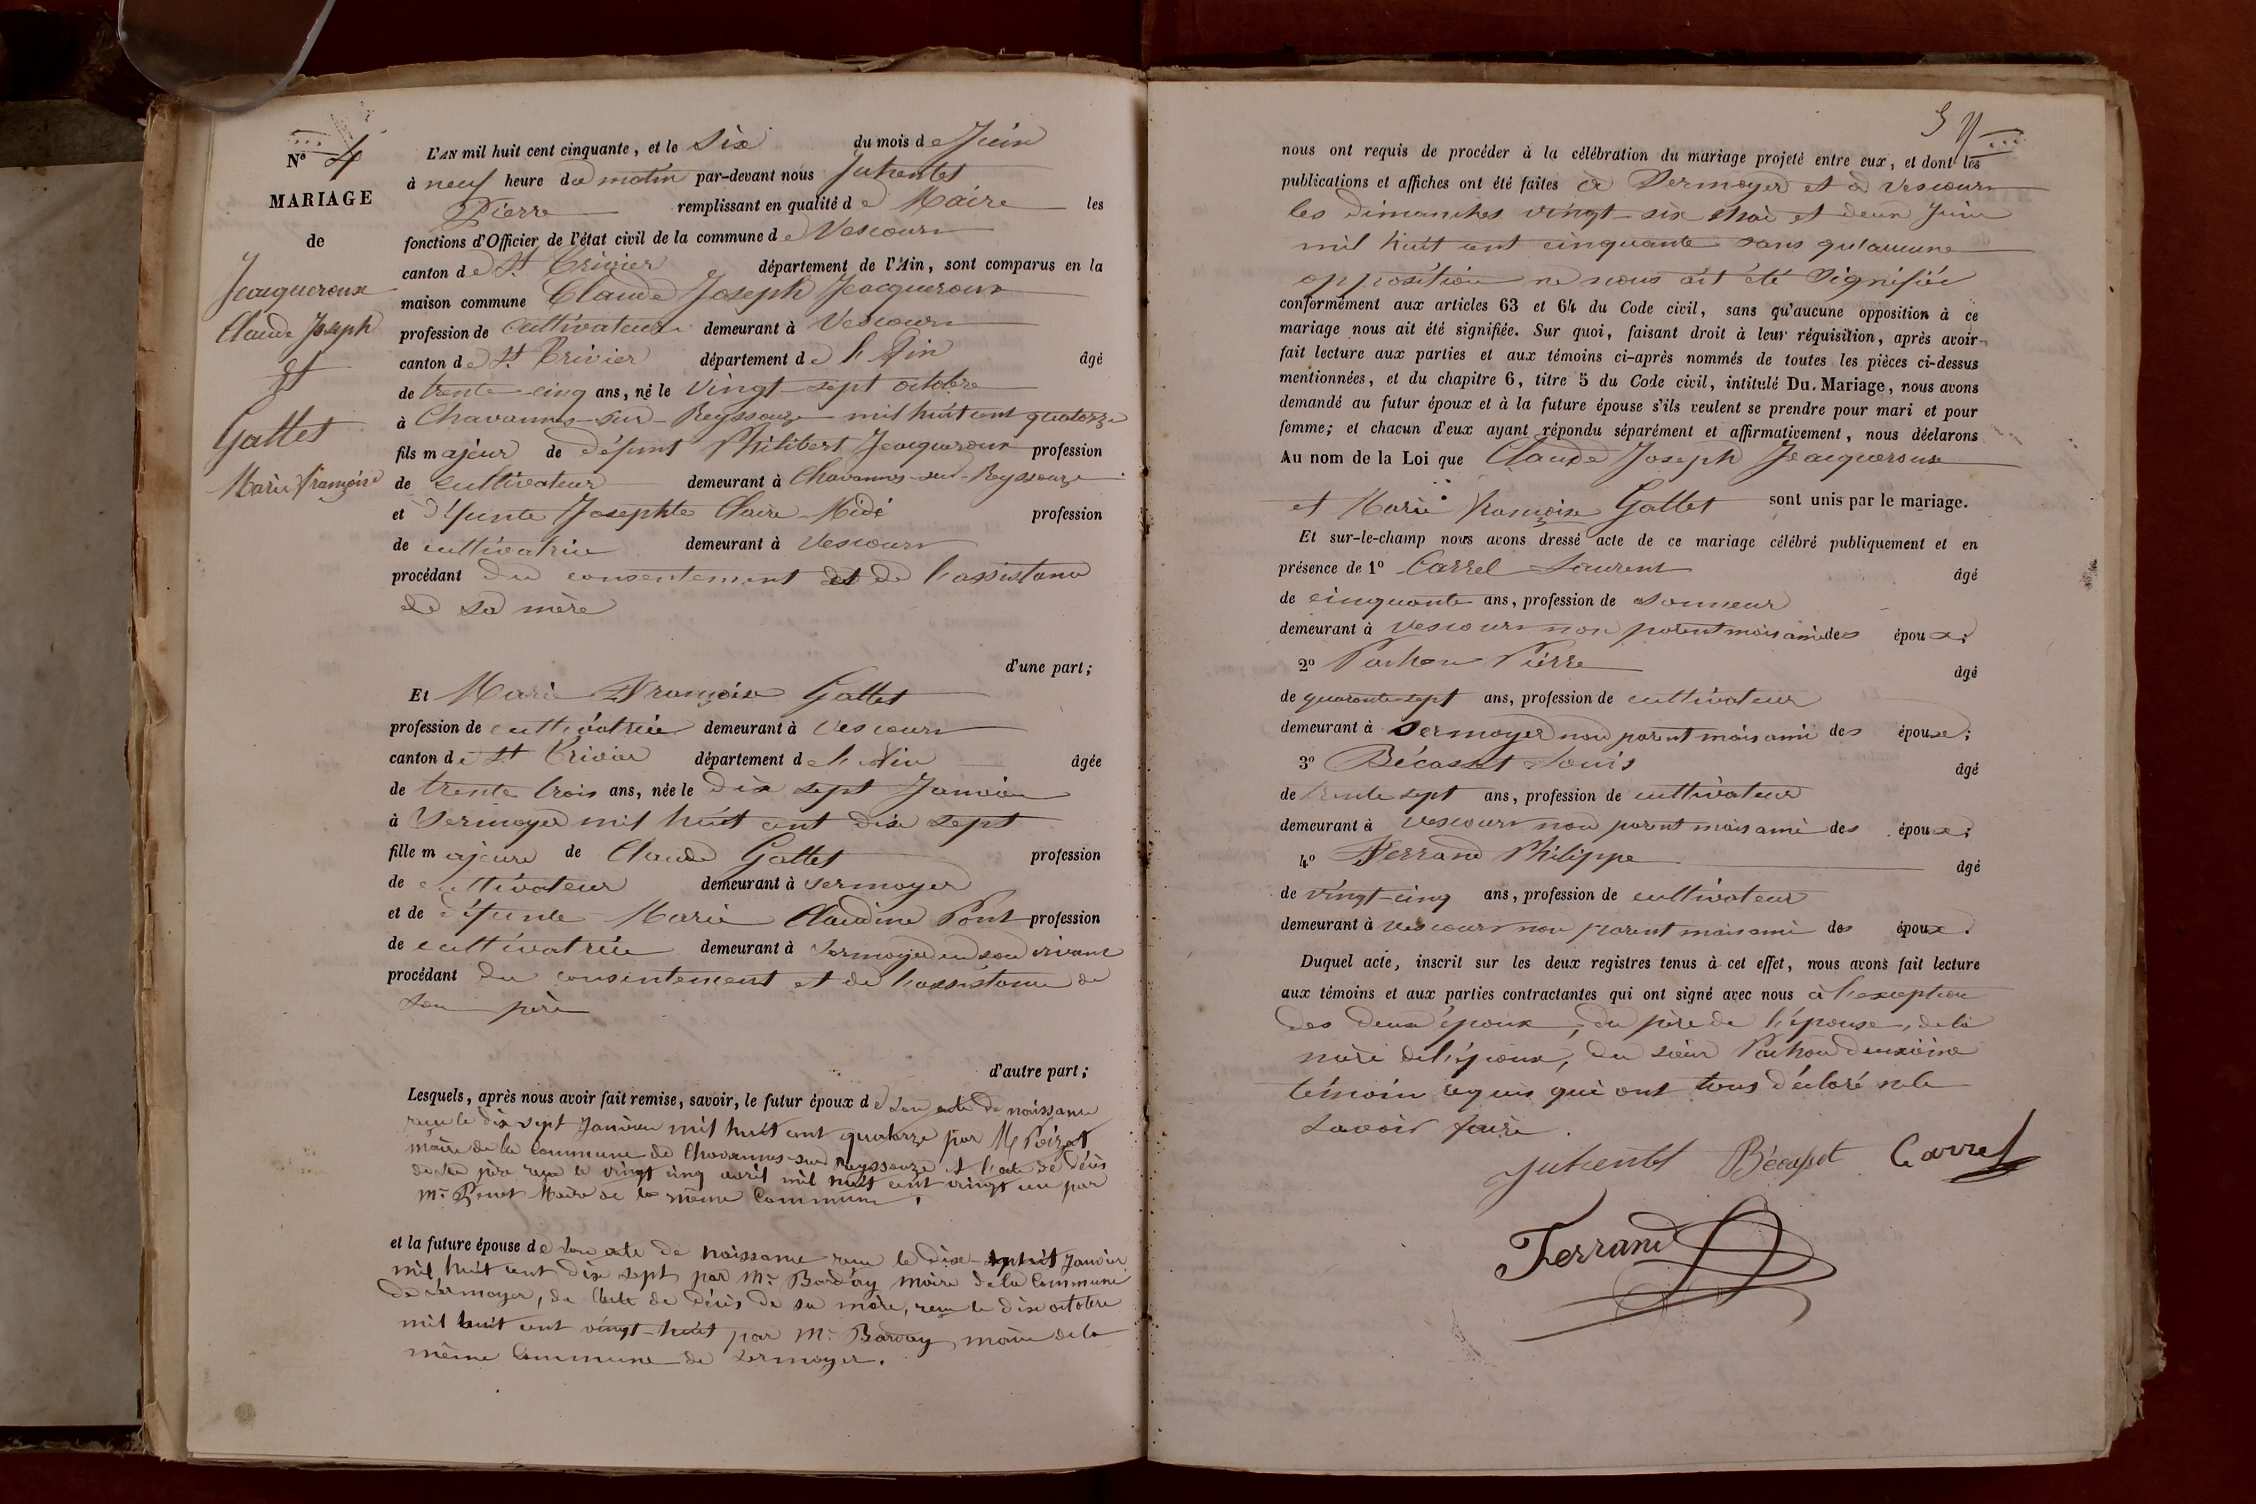 N° 4
MARIAGE
de
Jeacqueroux
Claude Joseph
et
Gallet
Marie Françoise
L'AN mil huit cent cinquante, et le Six du mois de Juin
à neuf heure du matin par-devant nous
Pierre remplissant en qualité de Maire les
fonctions d'Officier de l'état civil de la commune de Vescours
canton de St. Trivier département de l'Ain, sont comparus en la
maison commune Claude Joseph Jeacqueroux
profession de cultivateur demeurant à Vescours
canton de St. Trivier département de l'Ain âgé
de trente cinq ans, né le vingt-sept octobre
à Chavannes-sur-Reyssouze mil huit cent quatorze
fils majeur de défunt Philibert Jeacqueroux profession
de cultivateur demeurant à Chavannes-sur-Reyssouze
et défunte Josephte Claire Midé profession
de cultivatrice demeurant à Vescours
procédant du consentement et de l'assistance
de sa mère
d'une part;
Et Marie Françoise Gallet
profession de cultivatrice demeurant à Vescours
canton de St Trivier département de l'Ain âgée
de trente trois ans, née le dix sept Janvier
à Sermoyer mil huit cent dix sept
fille majeure de Claude Gallet profession
de cultivateur demeurant à Sermoyer
et de défunte Marie Claudine Pont profession
de cultivatrice demeurant à Sermoyer en son vivant
procédant du consentement et de l'assistance de
son père
d'autre part;
Lesquels, après nous avoir fait remise, savoir, le futur époux de son acte de naissance
reçu le dix sept Janvier mil huit cent quatorze par Mr Poizat
maire de la Commune de Chavannes-sur Reyssouze et l'acte de décès
de son père reçu le vingt cinq avril mil huit cent vingt un par
Mr. Maire de la même Commune.
et la future épouse de son acte de naissance reçu le dix-huit Janvier
mil huit cent dix sept par Mr. Barday maire de la Commune
de Sermoyer, de l'acte de décès de sa mère, reçu le dix octobre
mil huit cent vingt-huit par Mr. Barday, maire de la
même Commune de Sermoyer.
nous ont requis de procéder à la célébration du mariage projeté entre eux, et dont les
publications et affiches ont été faites à Sermoyer et à Vescours
les dimanches vingt-six Mai et deux Juin
mil huit cent cinquante sans qu'aucune
opposition ne nous ait été signifiée
conformément aux articles 63 et 64 du Code civil, sans qu'aucune opposition à ce
mariage nous ait été signifiée. Sur quoi, faisant droit à leur réquisition, après avoir
fait lecture aux parties et aux témoins ci-après nommés de toutes les pièces ci-dessus
mentionnées, et du chapitre 6, titre 5 du Code civil, intitulé Du Mariage, nous avons
demandé au futur époux et à la future épouse s'ils veulent se prendre pour mari et pour
femme; et chacun d'eux ayant répondu séparément et affirmativement, nous déclarons
Au nom de la Loi que Claude Joseph Jeacqueroux
et Marie Françoise Gallet sont unis par le mariage.
Et sur-le-champ nous avons dressé acte de ce mariage célébré publiquement et en
présence de 1° Carrel Laurent âgé
de cinquante ans, profession de sonneur
demeurant à Vescours non parent mais ami des époux;
2° Pachou Pierre âgé
de quarante sept ans, profession de cultivateur
demeurant à Sermoyer non parent mais ami des époux;
3° Bécasset Louis âgé
de trente sept ans, profession de cultivateur
demeurant à Vescours non parent mais ami des époux;
4° Ferrand Philippe âgé
de vingt-cinq ans, profession de cultivateur
demeurant à Vescours non parent mais ami des époux.
Duquel acte, inscrit sur les deux registres tenus à cet effet, nous avons fait lecture
aux témoins et aux parties contractantes qui ont signé avec nous à l'exception
des deux époux, du père de l'épouse, de la
mère de l'époux, du sieur Pachou deuxième
témoin requis qui ont tous déclaré ne le
savoir faire.
Bécasset Carrel
Ferrand